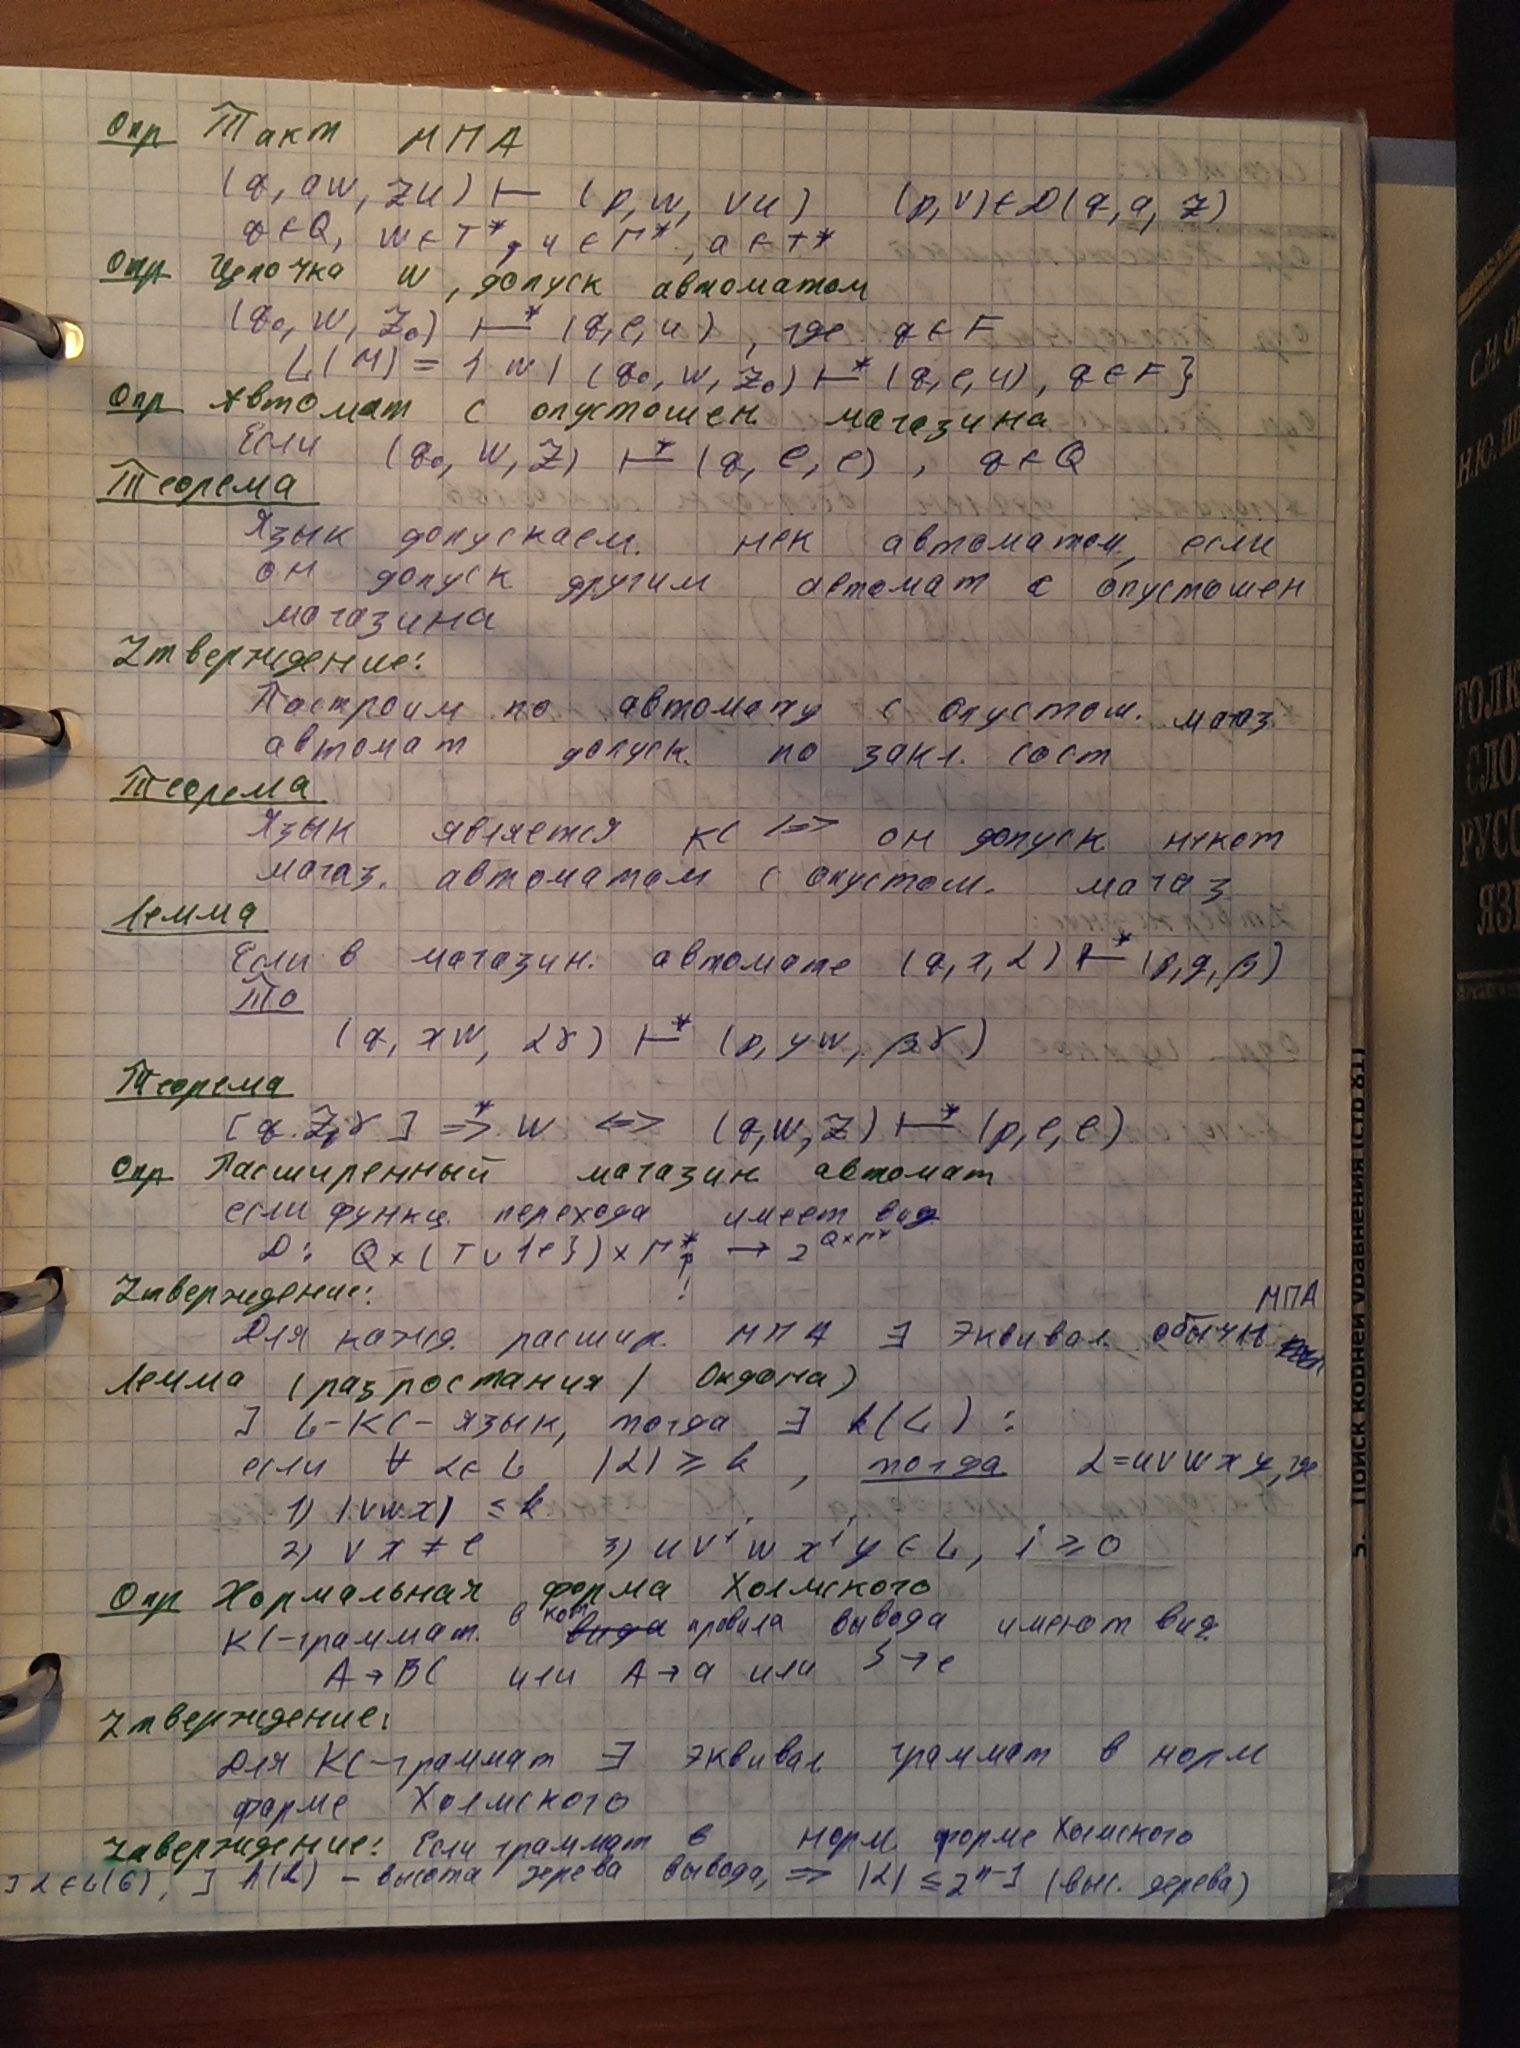 Опр Такт МПА
(q, aw, Zu) ⊢ (p, w, vu) (p,v)∈D(q, a, Z)
q∈Q, w∈T*, u∈Γ*, a∈T*
Опр Цепочка w, допуск автоматом
(q₀, w, Z₀) ⊢* (q, e, u), где q∈F
L(M) = { w | (q₀, w, Z₀) ⊢* (q, e, u), q∈F}
Опр Автомат с опустошен. магазина
Если (q₀, w, Z) ⊢* (q, e, e), q∈Q
Теорема
Язык допускаем. нек автоматом, если
он допуск другим автомат с опустошен
магазина
Утверждение:
Построим по автомату с опустош. магаз.
автомат допуск. по закл. сост
Теорема
Язык является КС <=> он допуск некот
магаз. автоматом с опустош. магаз
Лемма
Если в магазин. автомате (q, x, α) ⊢* (p, y, β)
То
(q, xw, αγ) ⊢* (p, yw, βγ)
Теорема
[q Z, γ] =>* w <=> (q, w, Z) ⊢* (p, e, e)
Опр Расширенный магазин автомат
если функц. перехода имеет вид
D: Q×(T∪{e})×Γ* → 2^(Q×Γ*)
!
Утверждение: МПА
Для кажд. расшир. МПА ∃ эквивал. обычн.
Лемма (разростания / Огдона)
] L-КС-язык, тогда ∃ k(L):
если ∀ α∈L |α| ≥ k, тогда α=uvwxy, где
1) |vwx| ≤ k
2) vx ≠ e 3) uvⁱwxⁱy∈L, i ≥ 0
Опр Нормальная форма Хомского
КС-граммат. в кот вида правила вывода имеют вид
A→BC или A→a или S→e
Утверждение:
Для КС-граммат ∃ эквивал граммат в норм
форме Хомского
Утверждение: Если граммат в норм. форме Хомского
] α∈L(G), ] h(α) - высота дерева вывода, => |α| ≤ 2ⁿ⁻¹ (выс. дерева)
5. Поиск корней уравнения (стр 81)
С.И. О
Н.Ю. Ш
ТОЛК
СЛО
РУСС
ЯЗ